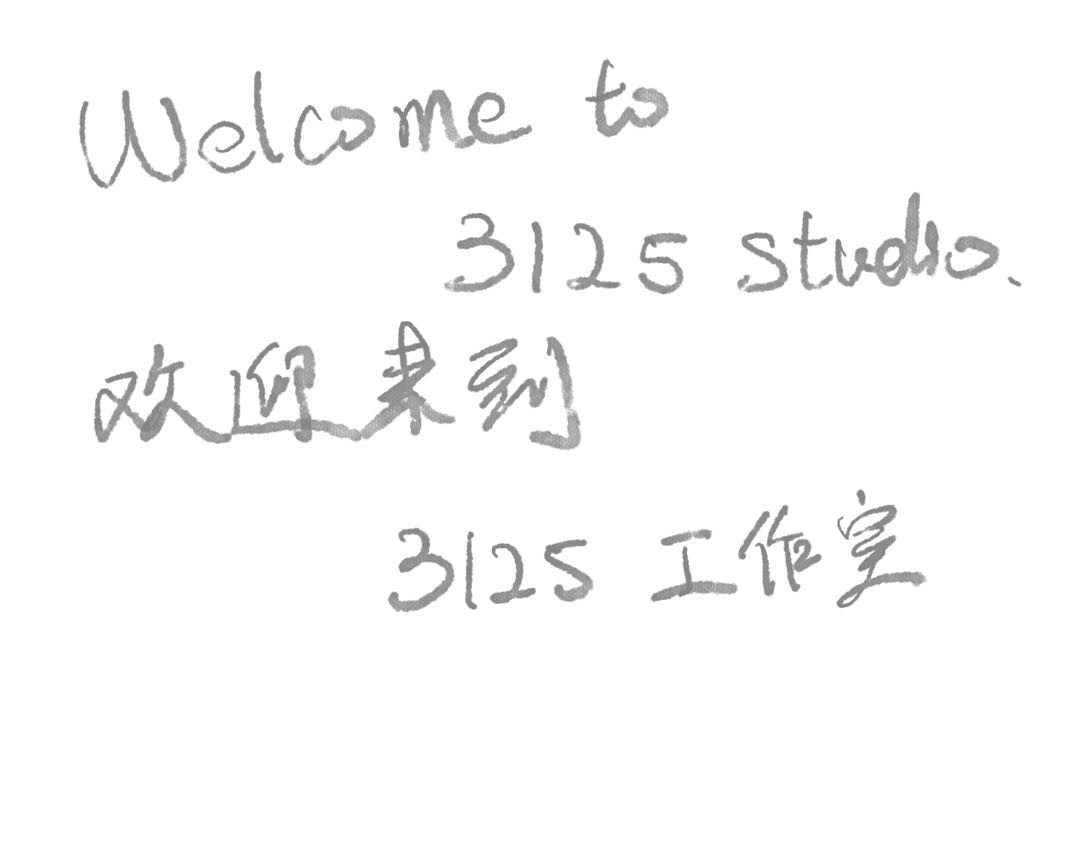 Welcome to
3125 studio.
欢迎来到
3125 工作室